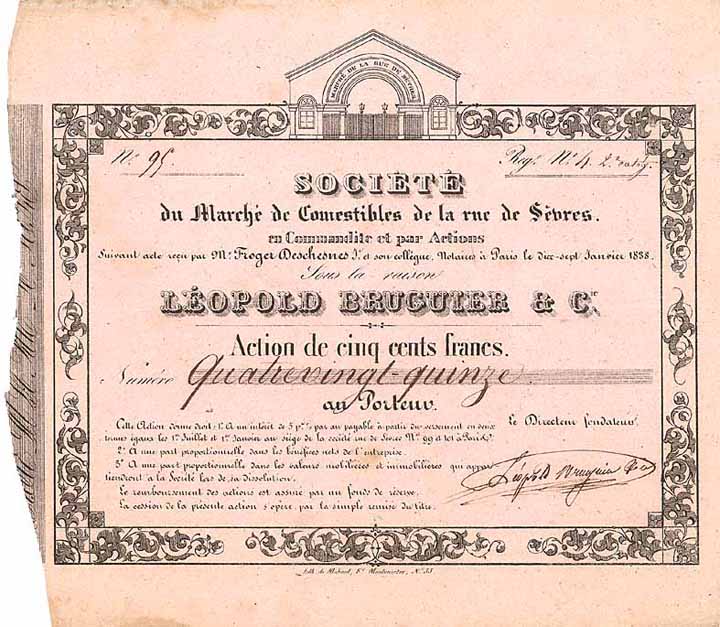 MARCHÉ DE LA RUE DE SÈVRES
No. 95. Regr. No. 4.
SOCIÉTÉ
du Marché de Comestibles de la rue de Sèvres.
en Commandite et par Actions
Suivant acte reçu par Me. Froger Deschesnes Je. et son collègue, Notaires à Paris le dix-sept Janvier 1838.
Sous la raison
LÉOPOLD BRUGUIER & Cie.
Action de cinq cents francs.
Numéro Quatrevingt-quinze
au Porteur.
Cette Action donne droit: 1° A un intérêt de 5 p% par an payable à partir du versement en deux
termes égaux les 1er Juillet et 1er Janvier au siège de la société rue de Sèvres Nos 99 et 101 à Paris.
2° A une part proportionnelle dans les bénéfices nets de l'entreprise.
3° A une part proportionnelle dans les valeurs mobilières et immobilières qui appar
tiendront à la Société lors de sa dissolution.
Le remboursement des actions est assuré par un fonds de réserve.
La cession de la présente action s'opère par la simple remise du titre.
Le Directeur fondateur.
Léopold Bruguier & Cie
Lith. de Fg. Montmartre, No.